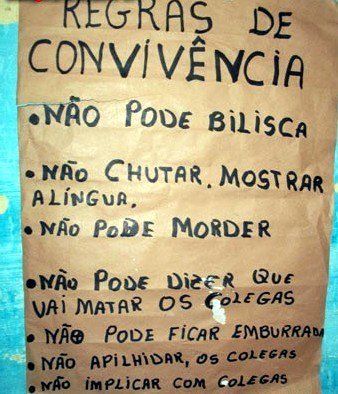 REGRAS DE
CONVIVÊNCIA
•NÃO PODE BILISCA
•NÃO CHUTAR, MOSTRAR
A LÍNGUA.
•NÃO PODE MORDER
•NÃO PODE DIZER QUE
VAI MATAR OS COLEGAS
•NÃO PODE FICAR EMBURRADA
•NÃO APILHIDAR, OS COLEGAS
•NÃO IMPLICAR COM COLEGAS